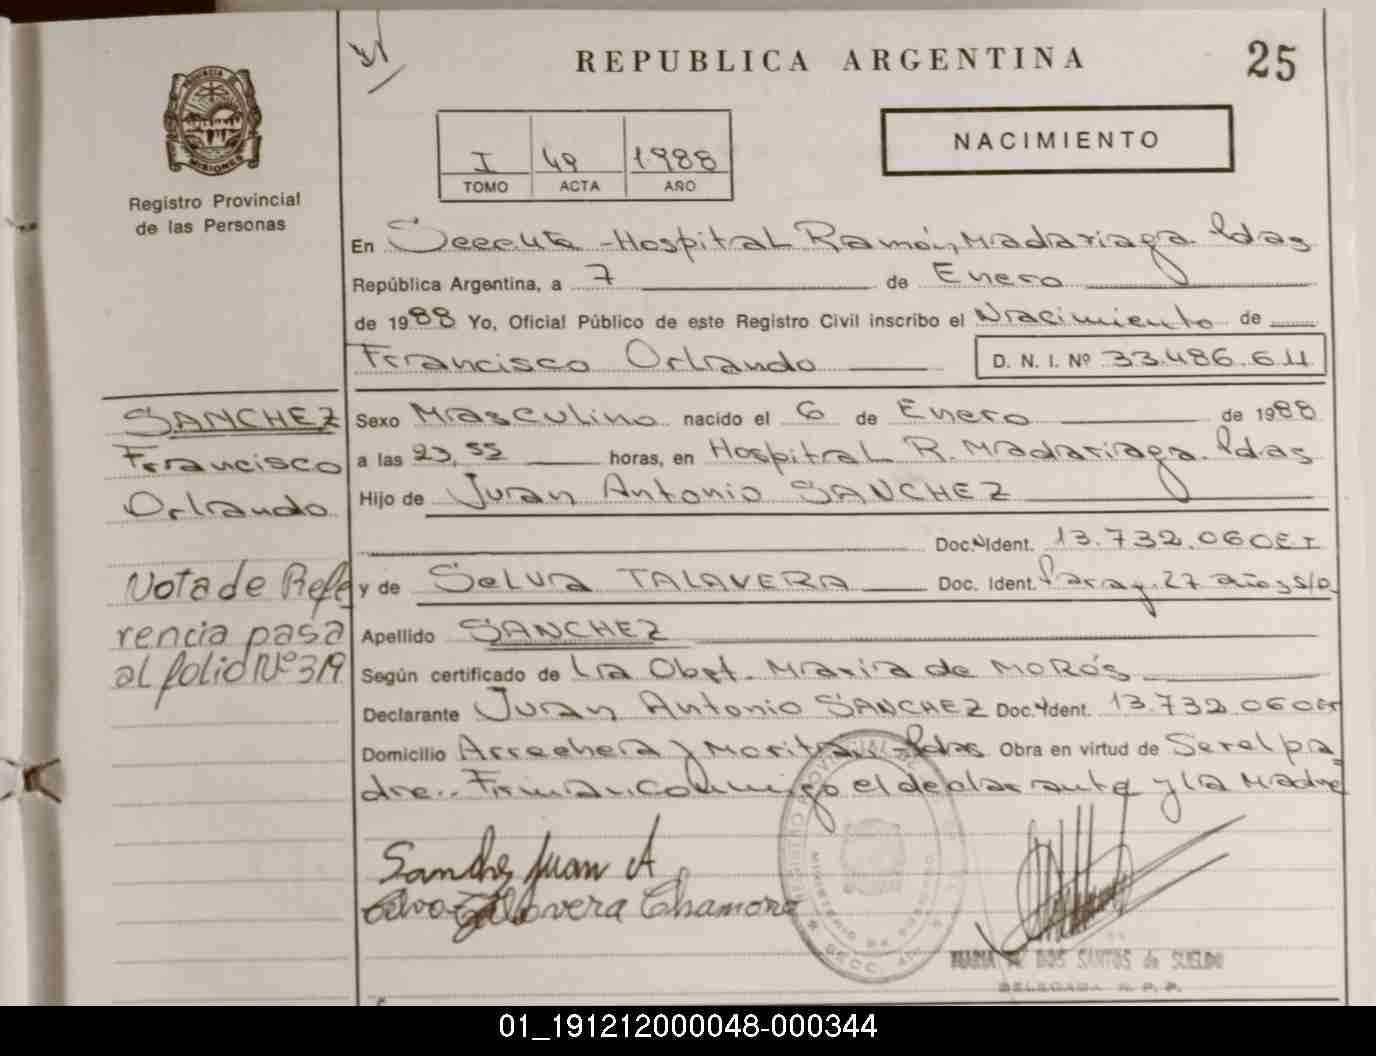 REPUBLICA ARGENTINA
25
PROVINCIA DE MISIONES
Registro Provincial
de las Personas
I 49 1988
TOMO ACTA AÑO
NACIMIENTO
En Secc 4ta - Hospital Ramón Madariaga Pdas
República Argentina, a 7 de Enero
de 1988 Yo, Oficial Público de este Registro Civil inscribo el Nacimiento de
Francisco Orlando D. N. I. Nº 33.486.611
SANCHEZ
Francisco
Orlando
Nota de Refe
rencia pasa
al folio Nº 319
Sexo Masculino nacido el 6 de Enero de 1988
a las 23,55 horas, en Hospital R. Madariaga Pdas
Hijo de Juan Antonio SANCHEZ
Doc. Ident. 13.732.060
y de Selva TALAVERA Doc. Ident. Parag. 27 años s/o
Apellido SANCHEZ
Según certificado de La Obst. Maria de MOROS
Declarante Juan Antonio SANCHEZ Doc. Ident. 13.732.060
Domicilio Arrechera y Moritan - Pdas Obra en virtud de Ser el pa
dre.- Firman conmigo el declarante y la Madre
Sanchez Juan A
Talavera Chamorro
REGISTRO PROVINCIAL
MINISTERIO DE GOBIERNO
SECC. 4
MARIA DOS SANTOS de SUELDO
DELEGADA R. P. P.
01_191212000048-000344